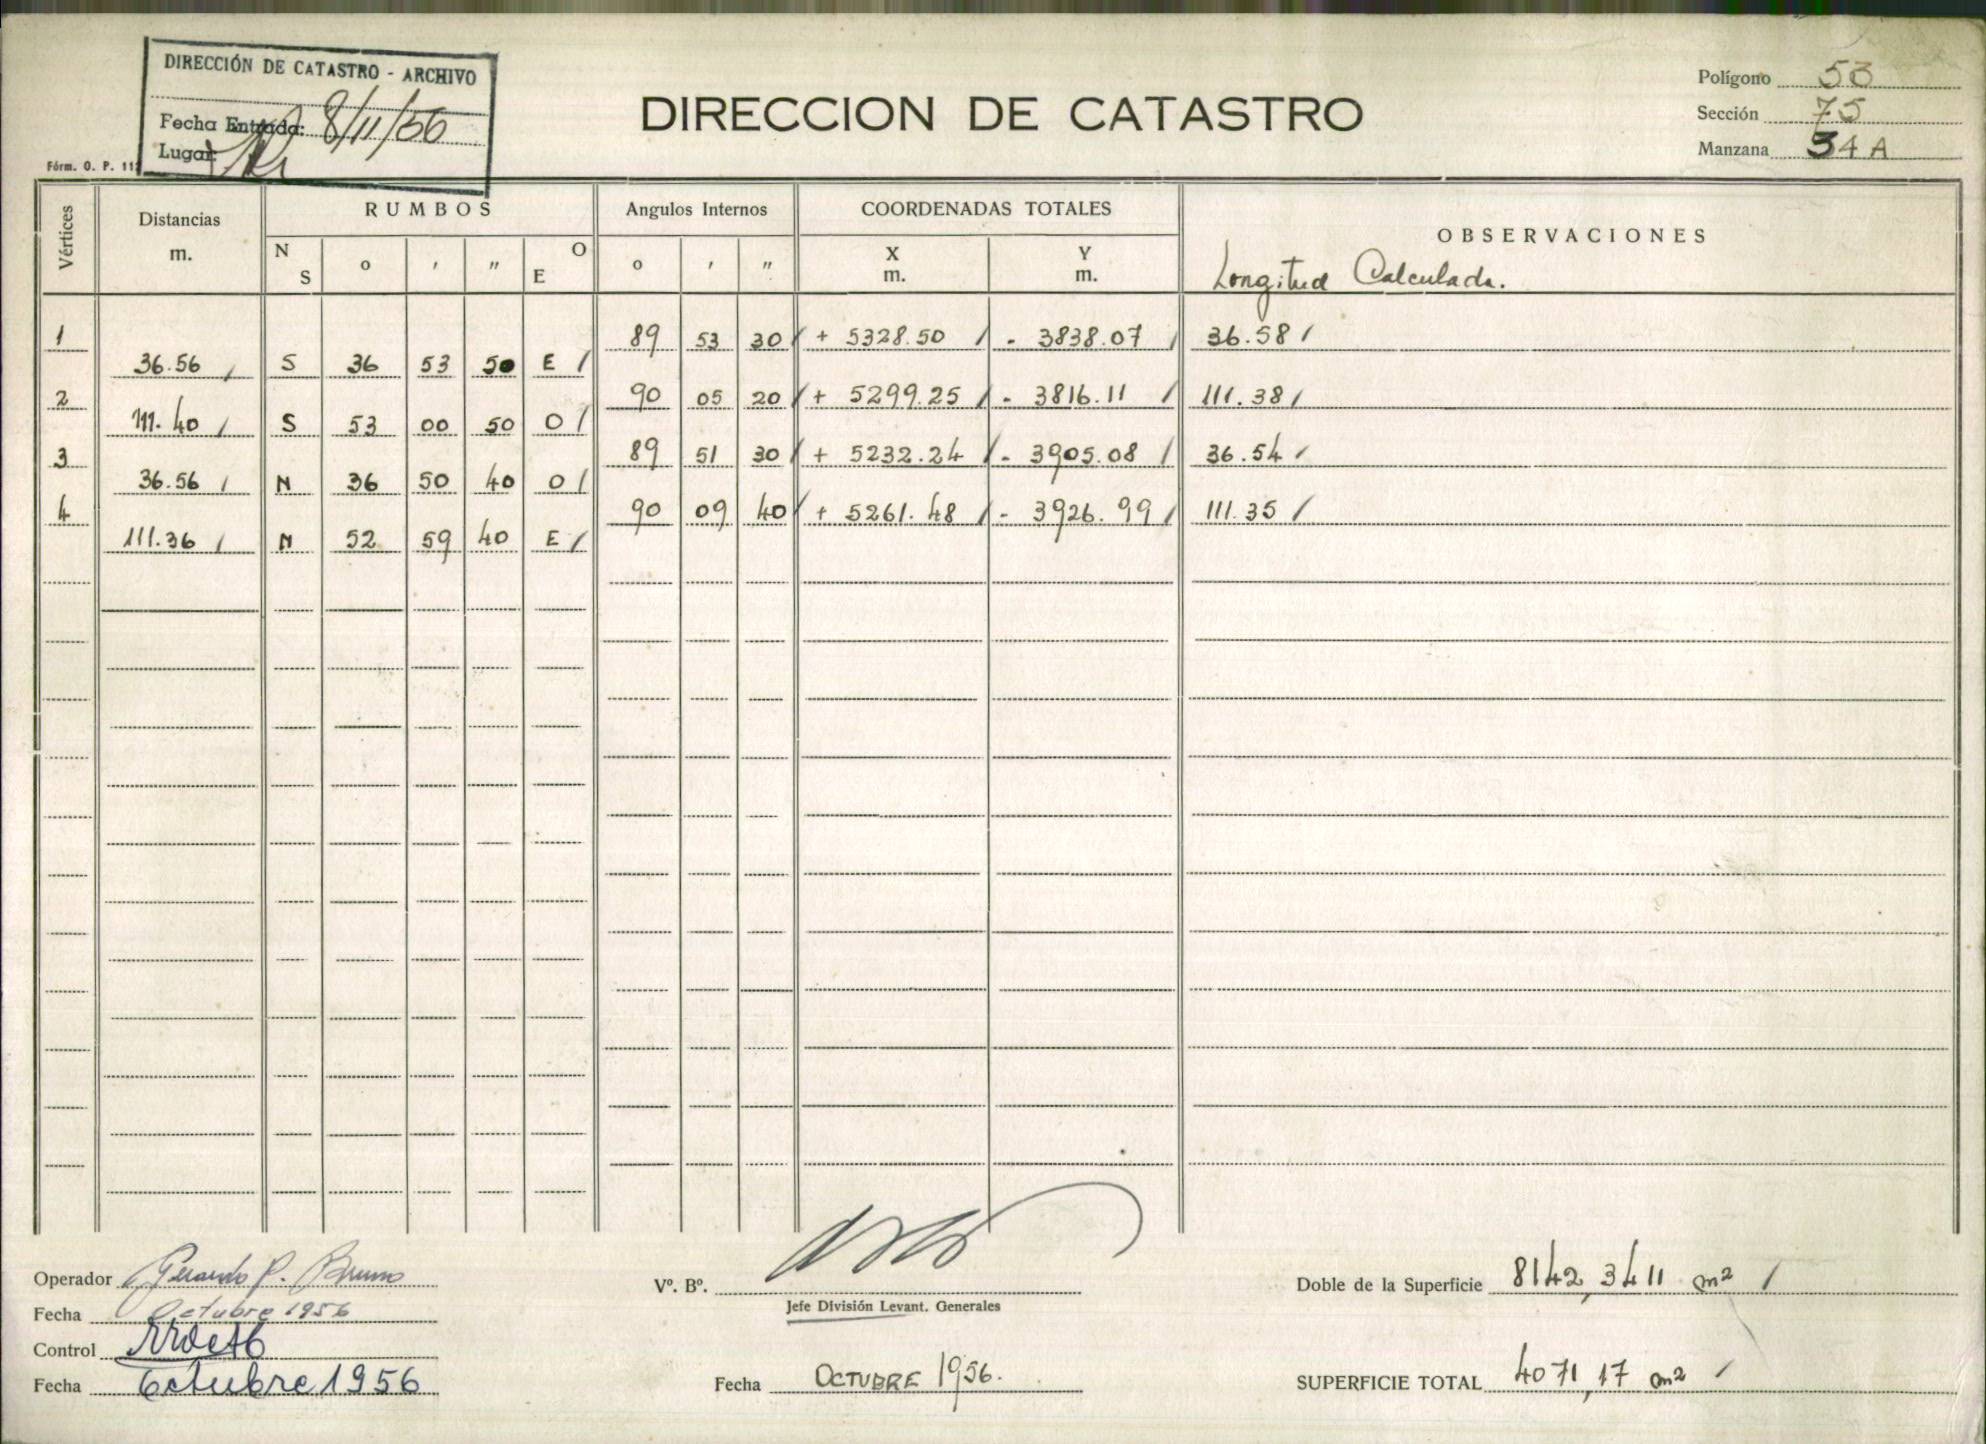 DIRECCIÓN DE CATASTRO - ARCHIVO
Fecha Entrada: 8/11/56
Lugar
Fórm. O. P. 11
DIRECCION DE CATASTRO
Polígono 53
Sección 75
Manzana 34 A
Vértices Distancias m. RUMBOS Angulos Internos COORDENADAS TOTALES OBSERVACIONES
N S o ' " O E o ' " X m. Y m. Longitud Calculada.
1 89 53 30 / + 5328.50 / - 3838.07 / 36.58 /
36.56 / S 36 53 50 E /
2 90 05 20 / + 5299.25 / - 3816.11 / 111.38 /
111.40 / S 53 00 50 O /
3 89 51 30 / + 5232.24 / - 3905.08 / 36.54 /
36.56 / N 36 50 40 O /
4 90 09 40 / + 5261.48 / - 3926.99 / 111.35 /
111.36 / N 52 59 40 E /
Operador Gerardo P. Bruno
Fecha Octubre 1956
Control
Fecha Octubre 1956
Vº. Bº.
Jefe División Levant. Generales
Fecha OCTUBRE 1956.
Doble de la Superficie 8142,3411 m2 /
SUPERFICIE TOTAL 4071,17 m2 /